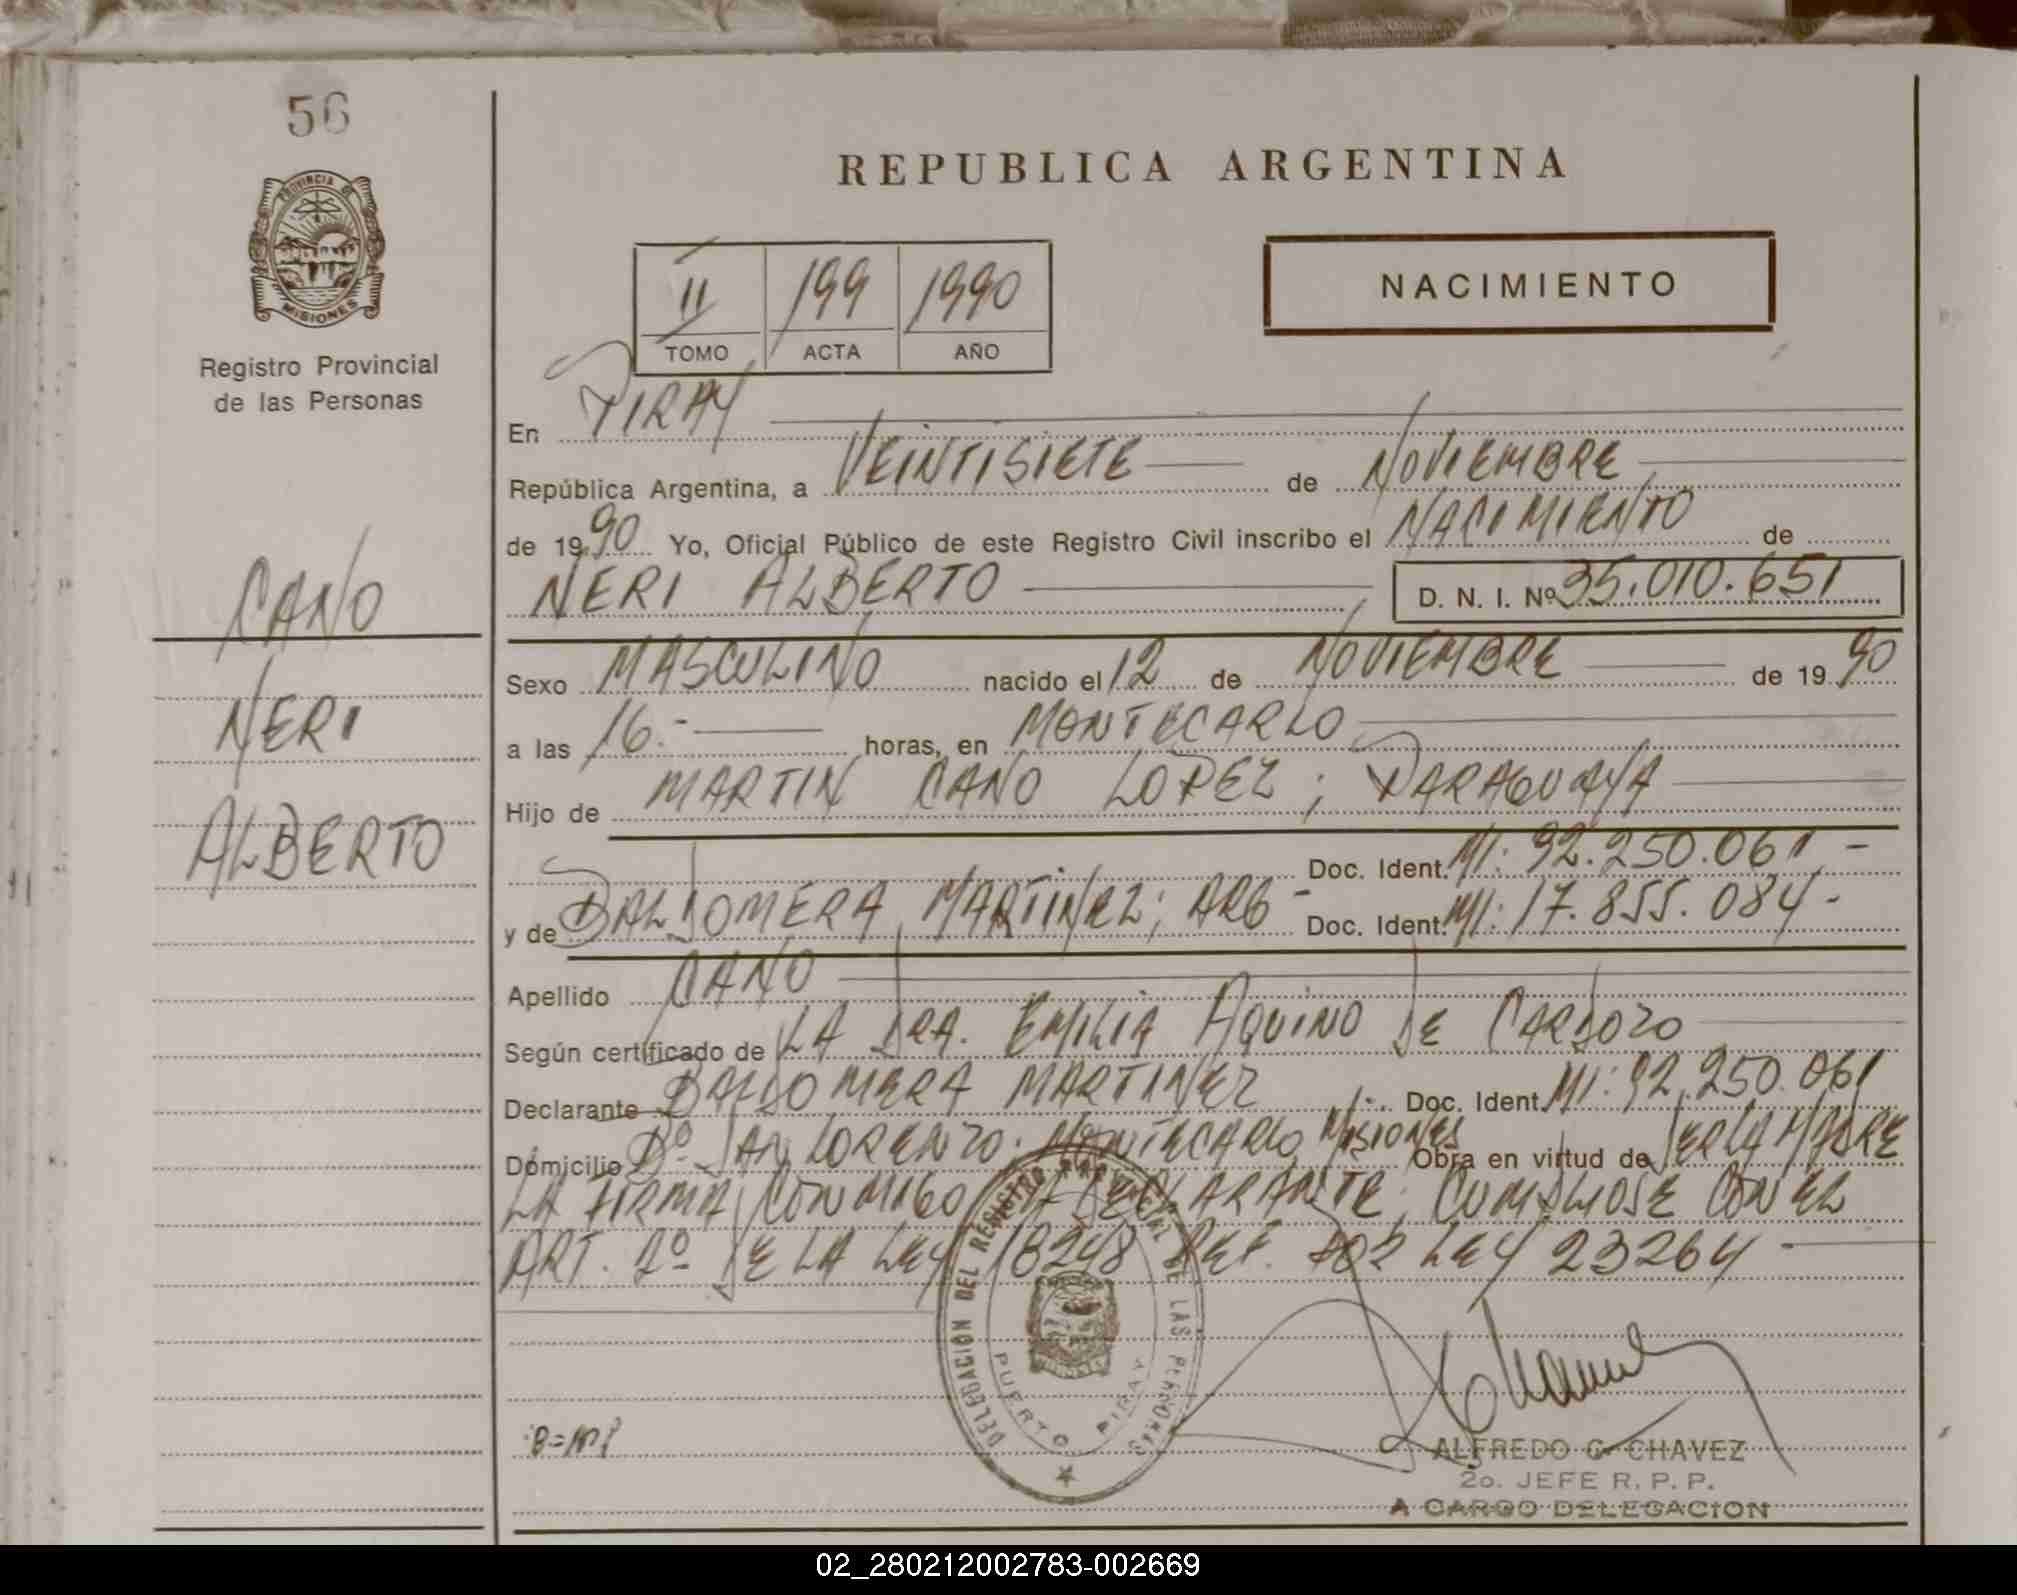 56
PROVINCIA DE
MISIONES
Registro Provincial
de las Personas
CANO
NERI
ALBERTO
REPUBLICA ARGENTINA
II 199 1990
TOMO ACTA AÑO
NACIMIENTO
En PIRAY
República Argentina, a VEINTISIETE de NOVIEMBRE
de 1990 Yo, Oficial Público de este Registro Civil inscribo el NACIMIENTO de
NERI ALBERTO D. N. I. Nº 35.010.651
Sexo MASCULINO nacido el 12 de NOVIEMBRE de 19 90
a las 16.- horas, en MONTECARLO
Hijo de MARTIN CANO LOPEZ; PARAGUAYA
Doc. Ident. MI: 92.250.061 -
y de BALDOMERA MARTINEZ; ARG - Doc. Ident. MI: 17.855.084 -
Apellido CANO
Según certificado de LA DRA. EMILIA AQUINO DE CARDOZO
Declarante BALDOMERA MARTINEZ Doc. Ident. MI: 92.250.061
Domicilio Bº SAN LORENZO. MONTECARLO MISIONES Obra en virtud de SER LA MADRE
LA FIRMA CONMIGO LA DECLARANTE; CUMPLIOSE CON EL
ART. 2º DE LA LEY 18248 REF. POR LEY 23264 -
DELEGACION DEL REGISTRO PROVINCIAL DE LAS PERSONAS
PUERTO PIRAY
ALFREDO C. CHAVEZ
2o. JEFE R. P. P.
A CARGO DELEGACION
02_280212002783-002669